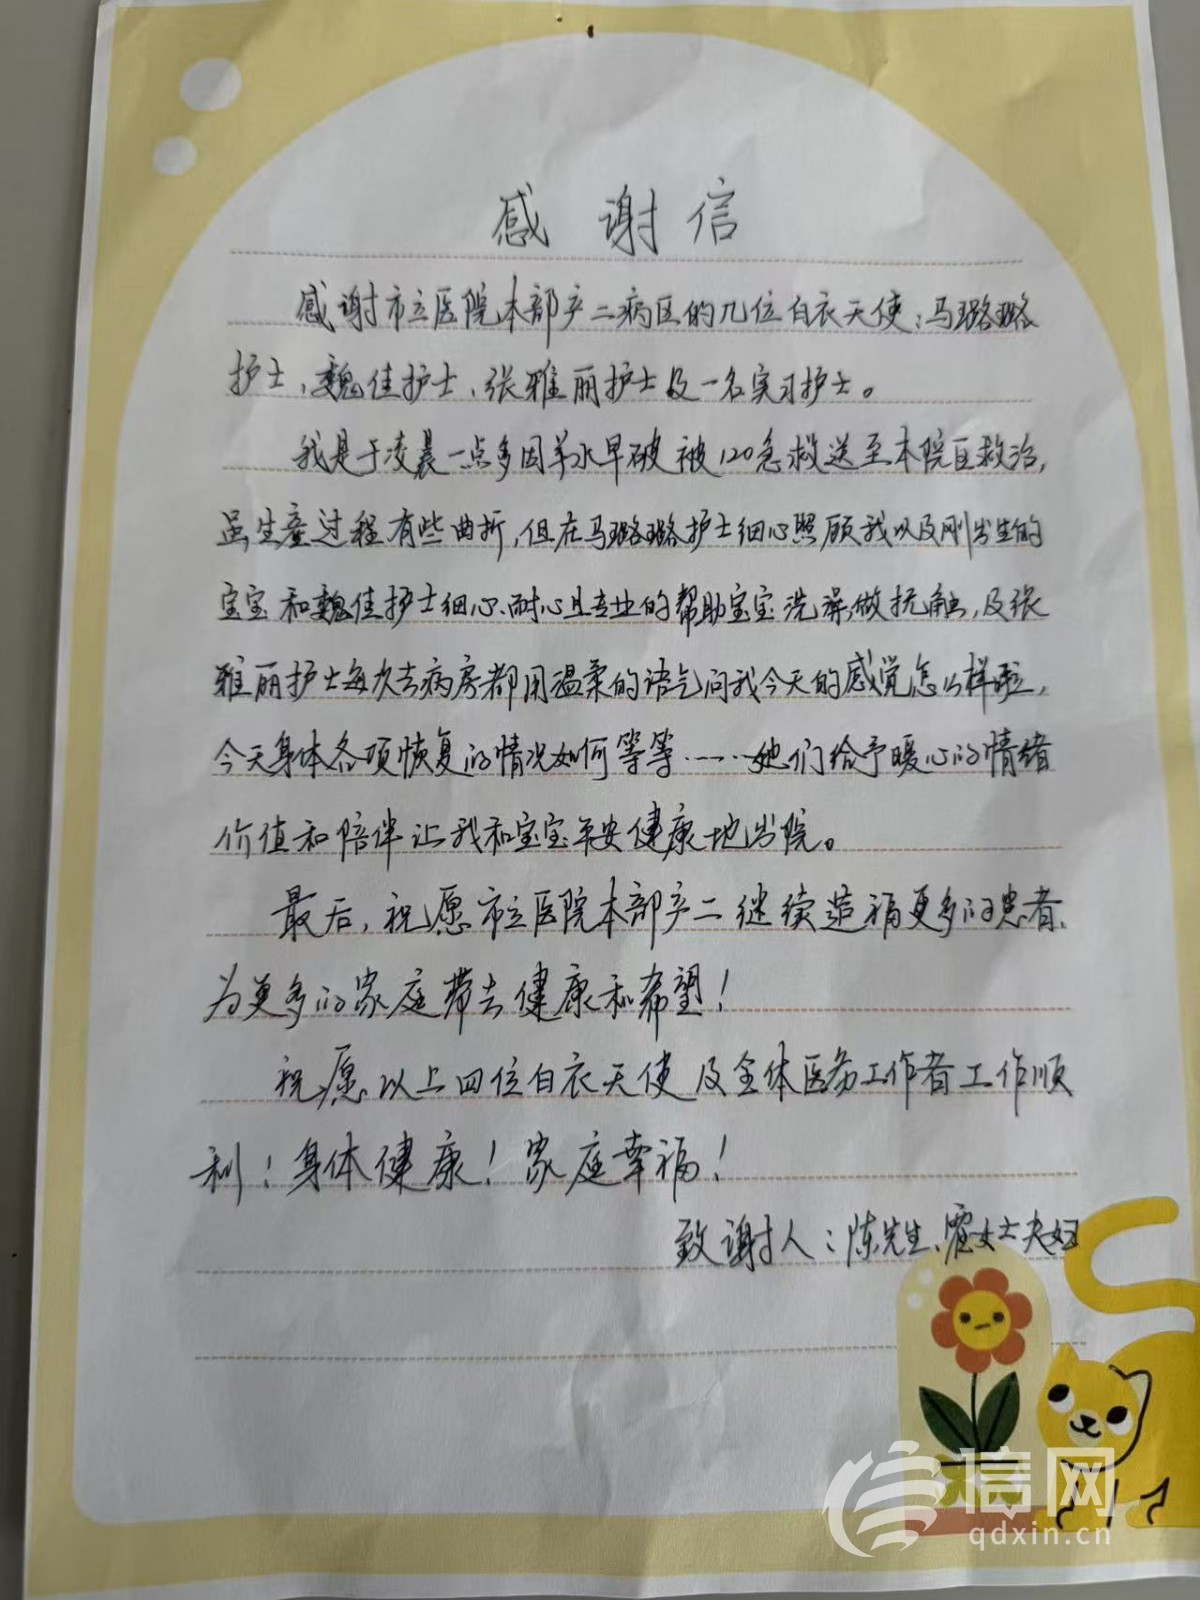 感谢信
感谢市立医院本部产二病区的几位白衣天使：马璐璐
护士、魏佳护士、张雅丽护士及一名实习护士。
我是于凌晨一点多因羊水早破被120急救送至本院区救治，
虽生产过程有些曲折，但在马璐璐护士细心照顾我以及刚出生的
宝宝和魏佳护士细心、耐心且专业的帮助宝宝洗澡、做抚触，及张
雅丽护士每次去病房都用温柔的语气问我今天的感觉怎么样啦，
今天身体各项恢复的情况如何等等……她们给予暖心的情绪
价值和陪伴让我和宝宝平安健康地出院。
最后，祝愿市立医院本部产二继续造福更多的患者，
为更多的家庭带去健康和希望！
祝愿以上四位白衣天使及全体医务工作者工作顺
利！身体健康！家庭幸福！
致谢人：陈先生、霍女士夫妇
信网
qdxin.cn